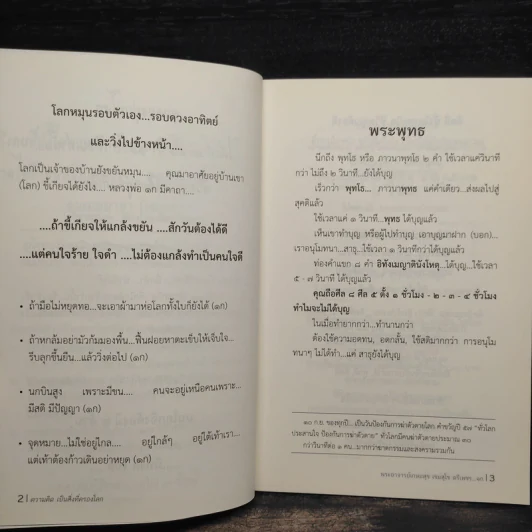 โลกหมุนรอบตัวเอง...รอบดวงอาทิตย์
และวิ่งไปข้างหน้า....
โลกเป็นเจ้าของบ้านยังขยันหมุน.... คุณมาอาศัยอยู่บ้านเขา
(โลก) ขี้เกียจได้ยังไง.... หลวงพ่อ ๑ก มีคาถา....
....ถ้าขี้เกียจให้แกล้งขยัน ....สักวันต้องได้ดี
....แต่คนใจร้าย ใจดำ ....ไม่ต้องแกล้งทำเป็นคนใจดี
• ถ้ามือไม่หยุดทอ...จะเอาผ้ามาห่อโลกทั้งใบก็ยังได้ (๑ก)
• ถ้าหกล้มอย่ามัวก้มมองพื้น...ฟื้นฝอยหาตะเข็บให้เจ็บใจ...
รีบลุกขึ้นยืน...แล้ววิ่งต่อไป (๑ก)
• นกบินสูง เพราะมีขน.... คนจะอยู่เหนือคนเพราะ...
มีสติ มีปัญญา (๑ก)
• จุดหมาย....ไม่ใช่อยู่ไกล.... อยู่ใกล้ๆ อยู่ใต้เท้าเรา...
แต่เท้าต้องก้าวเดินอย่าหยุด (๑ก)
2 | ความคิด เป็นสิ่งที่ครองโลก
พระพุทธ
นึกถึง พุทโธ หรือ ภาวนาพุทโธ ๒ คำ ใช้เวลาแค่วินาที
กว่า ไม่ถึง ๒ วินาที...ยังได้บุญ
เร็วกว่า พุทโธ... ภาวนาพุทธ แค่คำเดียว...ส่งผลไปสู่
สุคติแล้ว
ใช้เวลาแค่ ๑ วินาที...พุทธ ได้บุญแล้ว
เห็นเขาทำบุญ หรือผู้ไปทำบุญ เอาบุญมาฝาก (บอก)...
เราอนุโมทนา...สาธุ...ใช้เวลา ๑ วินาทีกว่าได้บุญแล้ว
ท่องคำแขก ๘ คำ อิทังเมญาตินังโหตุ...ได้บุญ...ใช้เวลา
๕ - ๗ วินาที ได้บุญแล้ว
คุณถือศีล ๘ ศีล ๕ ตั้ง ๑ ชั่วโมง - ๒ - ๓ - ๔ ชั่วโมง
ทำไมจะไม่ได้บุญ
ในเมื่อทำยากกว่า...ทำนานกว่า
ต้องใช้ความอดทน, อดกลั้น, ใช้สติมากกว่า การอนุโม
ทนาๆ ไม่ได้ทำ...แค่ สาธุยังได้บุญ
๑๐ ก.ย. ของทุกปี... เป็นวันป้องกันการฆ่าตัวตายโลก คำขวัญปี ๕๗ "ทั่วโลก
ประสานใจ ป้องกันการฆ่าตัวตาย" ทั่วโลกมีคนฆ่าตัวตายประมาณ ๓๐
กว่าวินาทีต่อ ๑ คน...มากกว่าฆาตกรรมและสงครามรวมกัน
| 3